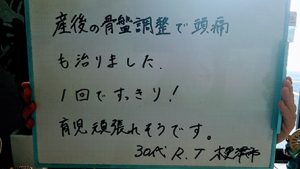 産後の骨盤調整で頭痛
も治りました.
1回ですっきり!
育児頑張れそうです。
30代 R.T 木更津市